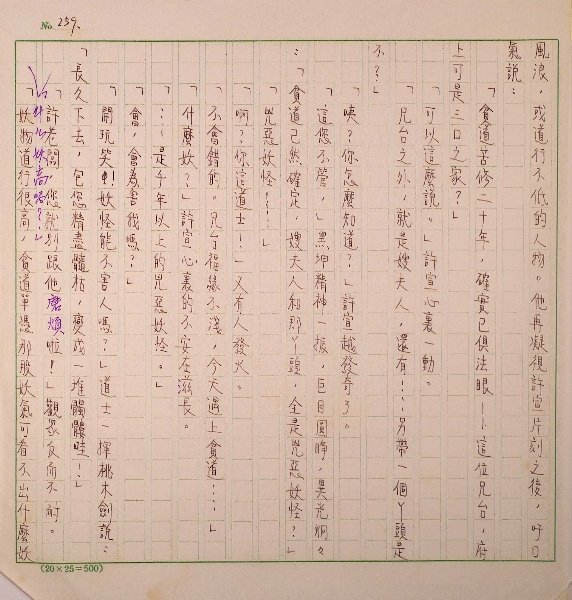 No. 259.
風浪，或道行不低的人物。他再凝視許宣片刻之後，吁口
氣說：
「貧道苦修二十年，確實已俱法眼——這位兄台，府
上可是三口之家？」
「可以這麼說。」許宣心裏一動。
「兄台之外，就是嫂夫人，還有！…另帶一個丫頭是
不？」
「咦？你怎麼知道？」許宣越發奇了。
「這您不管，」黑坤精神一振，巨目圓睜，異光炯々
：「貧道已然確定，嫂夫人和那丫頭，全是兇惡妖怪？」
「兇惡妖怪！…」
「啊？你這道士！…」又有人發火。
「不會錯的。兄台福緣不淺，今天遇上貧道！…」
「什麼妖？」許宣心裏的不安在漲長。
「…是千年以上的兇惡妖怪。」
「會，會為害我嗎？」
「開玩笑！妖怪能不害人嗎？」道士一揮桃木劍說：
「長久下去，包您精盡髓枯，變成一堆髑髏哇！」
「許老闆，您就別跟他磨煩啦！」觀眾反而不耐。
「什么妖高唔？！」
「妖物道行很高，貧道單憑那股妖氣可看不出什麼妖
(20×25=500)